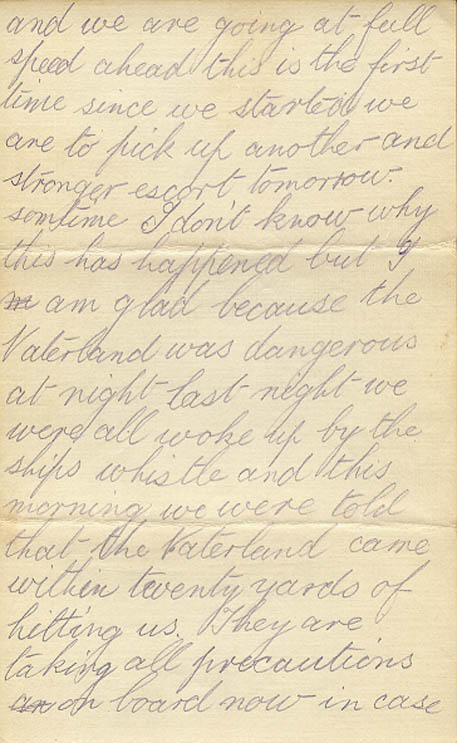 and we are going at full
speed ahead this is the first
time since we started we
are to pick up another and
stronger escort tomorrow.
somtime I don't know why
this has happened but I
m am glad because the
Vaterland was dangerous
at night last night we
were all woke up by the
ships whistle and this
morning we were told
that the Vaterland came
within twenty yards of
hitting us. They are
taking all precautions
an on board now in case